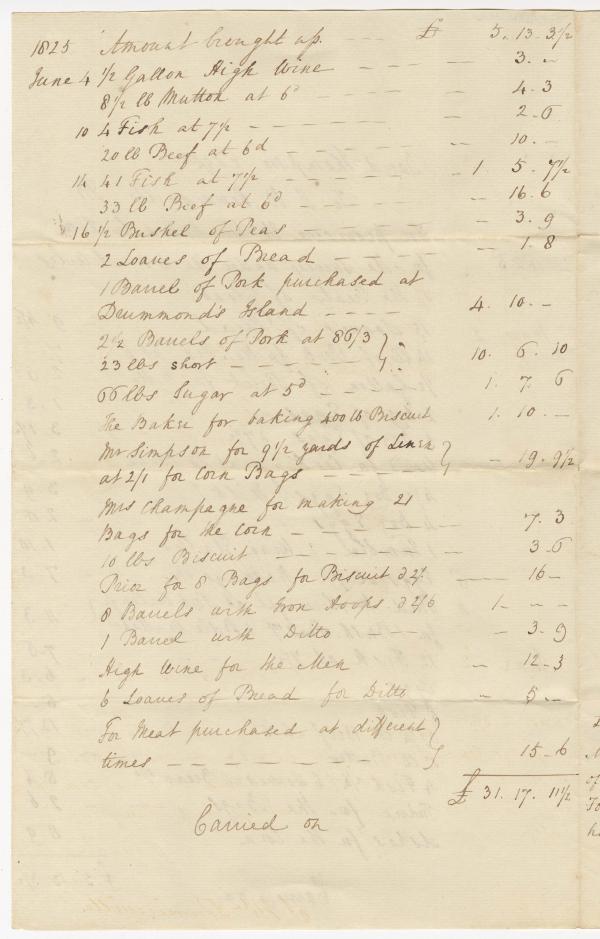 1825 Amount brought up. — — £ 5. 13. 3½
June 4 ½ Gallon High Wine — — — — 3. –
8½ lb Mutton at 6d — — — 4. 3
10 4 Fish at 7½ — — — — — 2 – 6
20 lb Beef at 6d — — — — — 10. –
14 41 Fish at 7½ — — — — 1 5. 7½
33 lb Beef at 6d — — — — 16. 6
16 ½ Bushel of Peas — — — — 3. 9
2 Loaves of Bread — — — — 1. 8
1 Barrel of Pork purchased at
Drummond's Island — — — — 4. 10. –
2½ Barrels of Pork at 86/3 }
23 lbs short — — — — — } 10. 6. 10
66 lbs Sugar at 5d — — — 1. 7. 6
The Baker for baking 400 lb Biscuit 1. 10. —
Mr Simpson for 9½ yards of Linen }
at 2/1 for Corn Bags — — — — } – 19. 9½
Mrs Champagne for making 21
Bags for the Corn — — — — 7. 3
10 lbs Biscuit — — — — — 3 – 6
Prior for 8 Bags for Biscuit @ 2/. — 16 –
8 Barrels with Iron Hoops @ 2/6 1 – – –
1 Barrel with Ditto — — — – 3. 9
High Wine for the Men – 12 – 3
6 Loaves of Bread for Ditto – 5. –
For Meat purchased at different }
times — — — — — — — } 15 – 6
£ 31. 17. 11½
Carried on